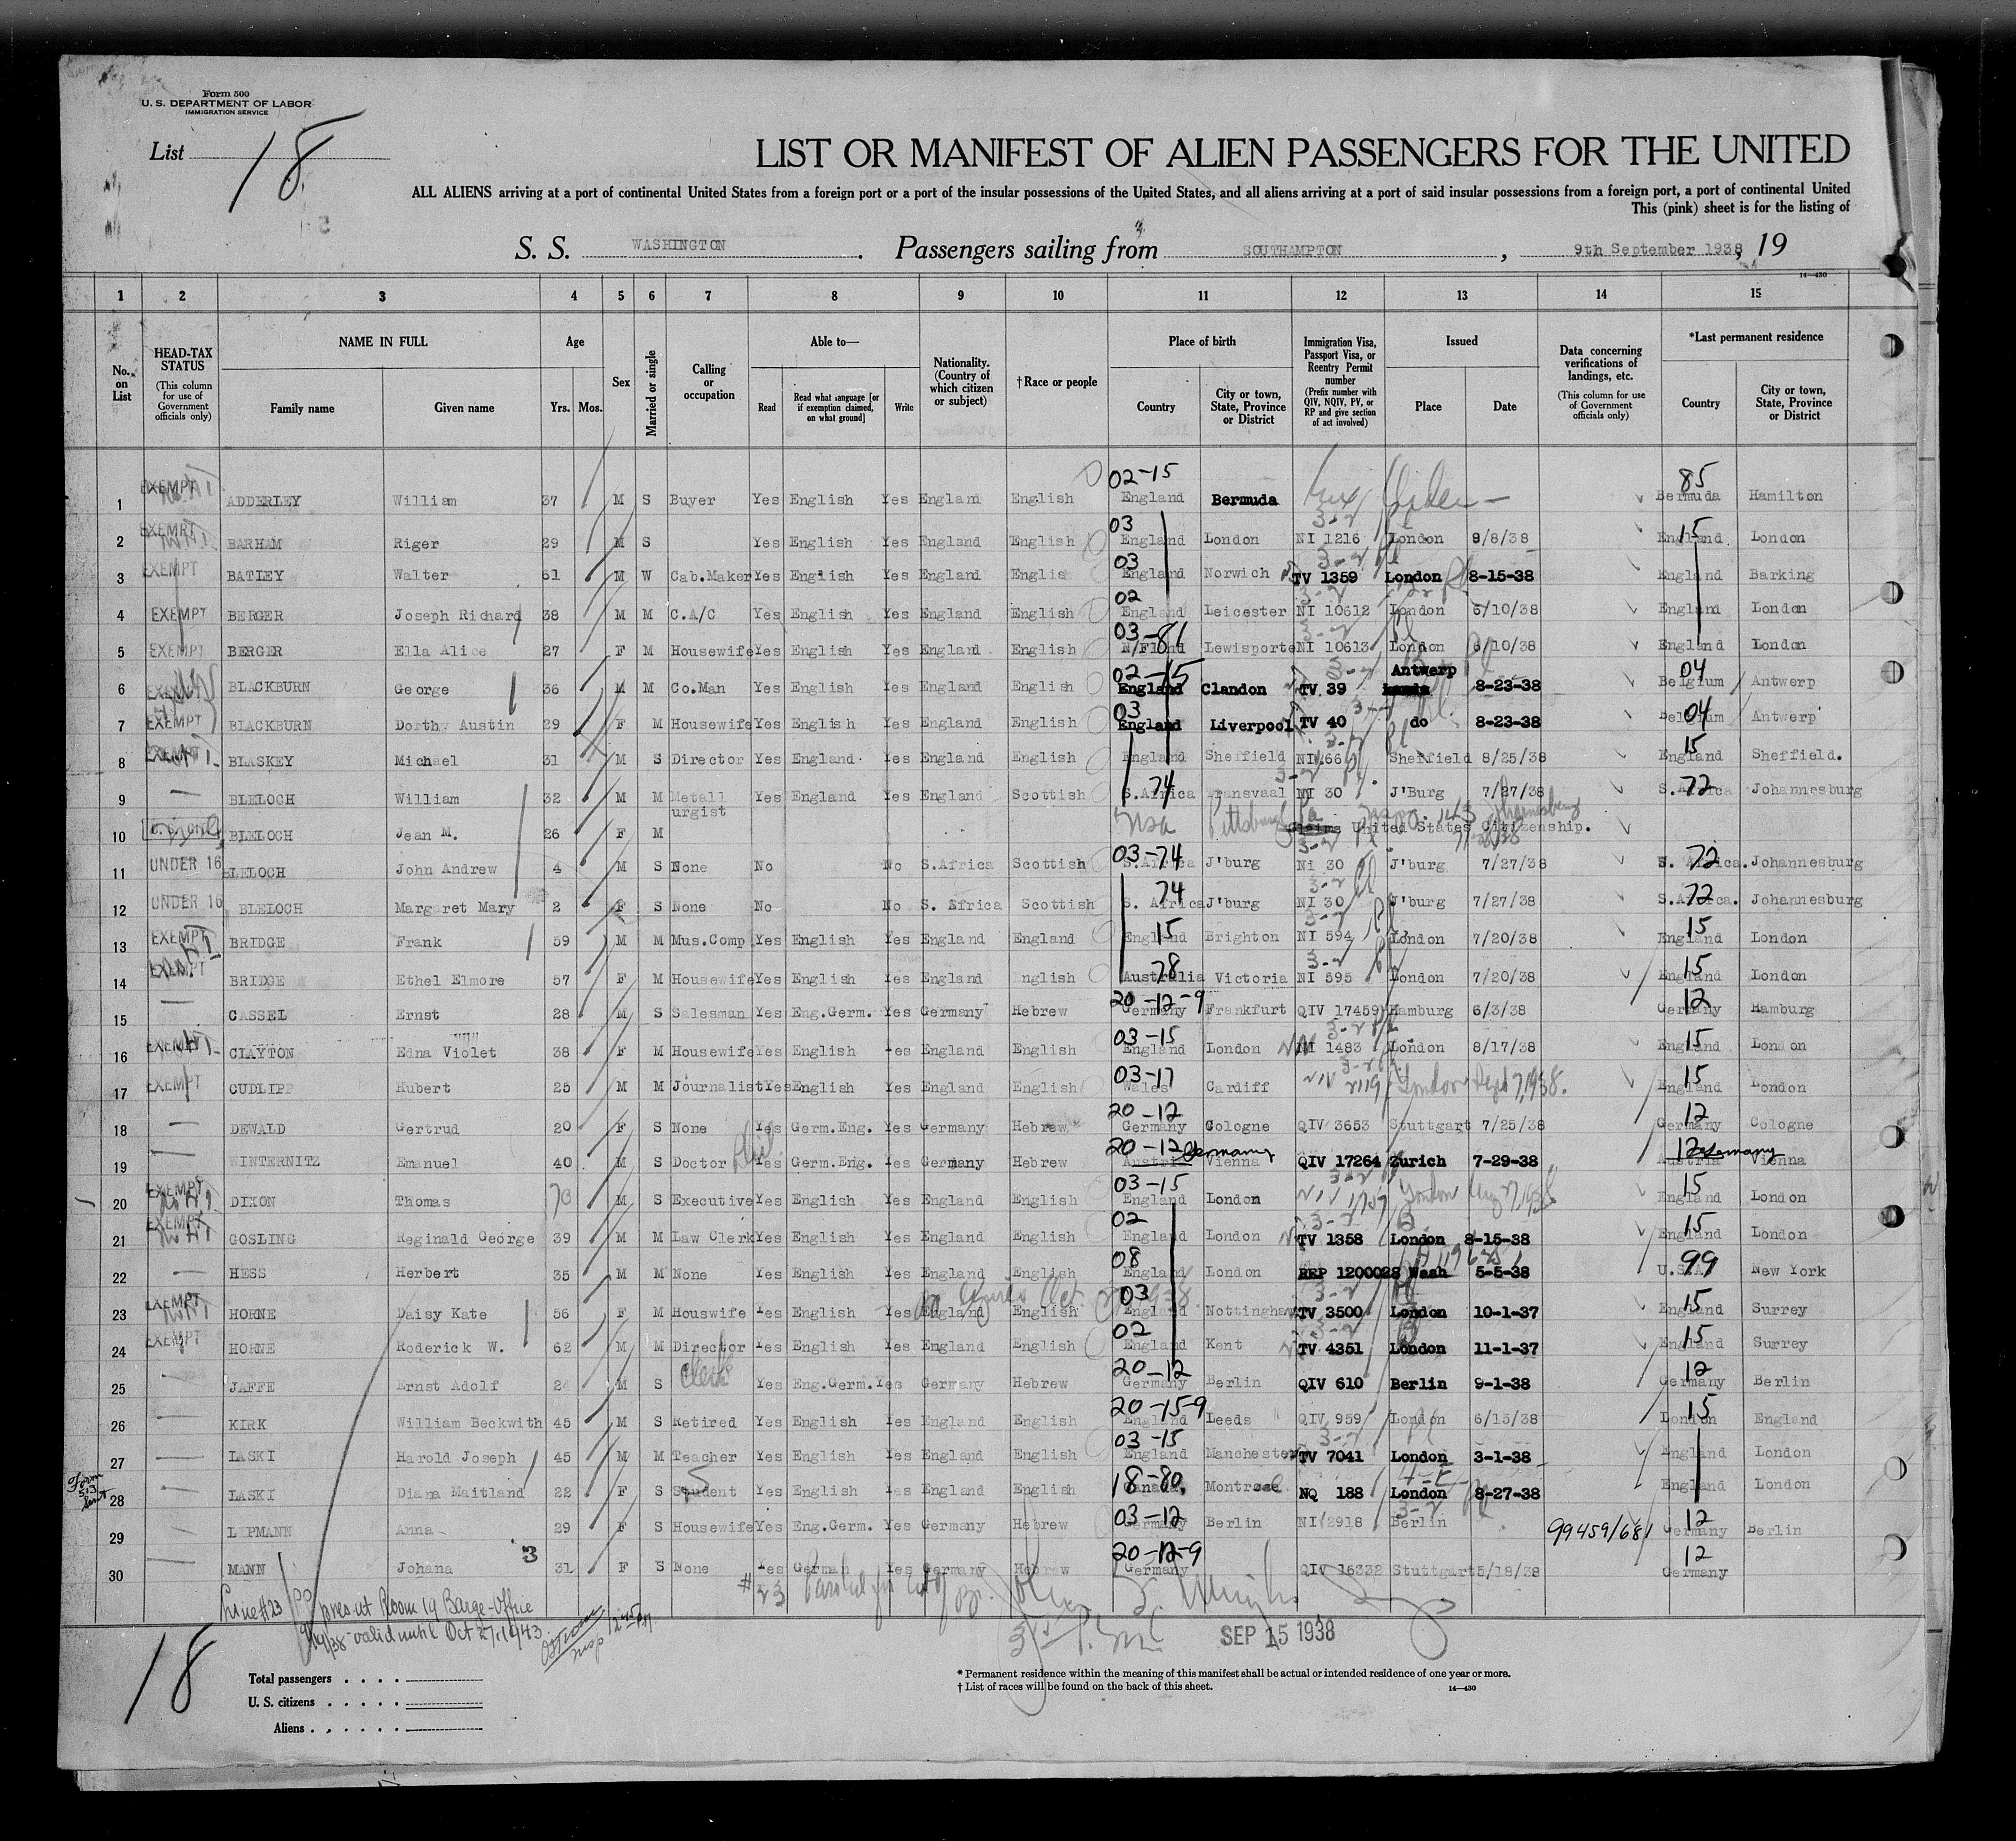 Form 500
U. S. DEPARTMENT OF LABOR
IMMIGRATION SERVICE
List 18
LIST OR MANIFEST OF ALIEN PASSENGERS FOR THE UNITED
ALL ALIENS arriving at a port of continental United States from a foreign port or a port of the insular possessions of the United States, and all aliens arriving at a port of said insular possessions from a foreign port, a port of continental United
This (pink) sheet is for the listing of
S. S. WASHINGTON. Passengers sailing from SOUTHAMPTON, 9th September 1938, 19
14—430
1 2 3 4 5 6 7 8 9 10 11 12 13 14 15
No. on List
HEAD-TAX STATUS (This column for use of Government officials only)
NAME IN FULL
Family name Given name
Age
Yrs. Mos.
Sex
Married or single
Calling or occupation
Able to—
Read Read what language [or if exemption claimed, on what ground] Write
Nationality. (Country of which citizen or subject)
† Race or people
Place of birth
Country City or town, State, Province or District
Immigration Visa, Passport Visa, or Reentry Permit number (Prefix number with QIV, NQIV, PV, or RP and give section of act involved)
Issued
Place Date
Data concerning verifications of landings, etc. (This column for use of Government officials only)
*Last permanent residence
Country City or town, State, Province or District
02-15 85
1 EXEMPT ADDERLEY William 37 M S Buyer Yes English Yes England English England Bermuda Bermuda Hamilton
03 3-2 15
2 EXEMPT BARHAM Riger 29 M S Yes English Yes England English England London NI 1216 London 9/8/38 England London
03 3-2
3 EXEMPT BATLEY Walter 61 M W Cab.Maker Yes English Yes England Englis England Norwich TV 1359 London 8-15-38 England Barking
02 3-2
4 EXEMPT BERGER Joseph Richard 38 M M C.A/C Yes English Yes England English England Leicester NI 10612 London 6/10/38 England London
03-81 3-2
5 EXEMPT BERGER Ella Alice 27 F M Housewife Yes English Yes England English N/Fland Lewisporte NI 10613 London 6/10/38 England London
02-15 3-2 Antwerp 04
6 EXEMPT BLACKBURN George 36 M M Co.Man Yes English Yes England English England Clandon TV 39 8-23-38 Belgium Antwerp
03 3-2 04
7 EXEMPT BLACKBURN Dorthy Austin 29 F M Housewife Yes English Yes England English England Liverpool TV 40 do 8-23-38 Belgium Antwerp
3-2 15
8 EXEMPT BLASKEY Michael 31 M S Director Yes England Yes England English England Sheffield NI 66 Sheffield 8/25/38 England Sheffield.
74 3-2 72
9 BLELOCH William 32 M M Metall urgist Yes England Yes England Scottish S.Africa Transvaal NI 30 J'Burg 7/27/38 S.Africa Johannesburg
10 BLELOCH Jean M. 26 F M USA Pittsburgh Pa Claims United States Citizenship.
03-74 3-2 72
11 UNDER 16 BLELOCH John Andrew 4 M S None No No S.Africa Scottish S.Africa J'burg NI 30 J'burg 7/27/38 S. Africa. Johannesburg
74 3-2 72
12 UNDER 16 BLELOCH Margaret Mary 2 F S None No No S. Africa Scottish S. Africa J'burg NI 30 J'burg 7/27/38 S.Africa. Johannesburg
15 3-2 15
13 EXEMPT BRIDGE Frank 59 M M Mus.Comp Yes English Yes England England England Brighton NI 594 London 7/20/38 England London
78 3-2 15
14 EXEMPT BRIDGE Ethel Elmore 57 F M Housewife Yes English Yes England nglish Australia Victoria NI 595 London 7/20/38 England London
20-12-9 12
15 CASSEL Ernst 28 M S Salesman Yes Eng.Germ. Yes Germany Hebrew Germany Frankfurt QIV 17459 Hamburg 6/3/38 Germany Hamburg
03-15 3-2 15
16 EXEMPT CLAYTON Edna Violet 38 F M Housewife Yes English Yes England English England London NI 1483 London 8/17/38 England London
03-17 3-2 15
17 EXEMPT CUDLIPP Hubert 25 M M Journalist Yes English Yes England English Wales Cardiff NIV 2119 London Sept 7, 1938. England London
20-12 12
18 DEWALD Gertrud 20 F S None Yes Germ.Eng. Yes Germany Hebrew Germany Cologne QIV 3653 Stuttgart 7/25/38 Germany Cologne
20-12 Germany 12 Germany
19 WINTERNITZ Emanuel 40 M S Doctor Yes Germ.Eng. Yes Germany Hebrew Austria Vienna QIV 17264 Zurich 7-29-38 Austria Vienna
03-15 3-2 15
20 EXEMPT DIXON Thomas M S Executive Yes English Yes England English England London NIV 1757 London England London
02 3-2 15
21 EXEMPT GOSLING Reginald George 39 M M Law Clerk Yes English Yes England English England London TV 1358 London 8-15-38 England London
08 99
22 HESS Herbert 35 M M None Yes English Yes England English England London REP 1200028 Wash 5-5-38 U.S.A. New York
03 3-2 15
23 EXEMPT HORNE Daisy Kate 56 F M Houswife Yes English Yes England English England Nottingham TV 3500 London 10-1-37 England Surrey
02 3-2 15
24 EXEMPT HORNE Roderick W. 62 M M Director Yes English Yes England English England Kent TV 4351 London 11-1-37 England Surrey
20-12 12
25 JAFFE Ernst Adolf 24 M S Clerk Yes Eng.Germ. Yes Germany Hebrew Germany Berlin QIV 610 Berlin 9-1-38 Germany Berlin
20-15-9 15
26 KIRK William Beckwith 45 M S Retired Yes English Yes England English England Leeds QIV 959 London 6/15/38 London England
03-15 3-2
27 LASKI Harold Joseph 45 M M Teacher Yes English Yes England English England Manchester TV 7041 London 3-1-38 England London
Form 513 Sent
18-80 4-E
28 LASKI Diana Maitland 22 F S Student Yes English Yes England English Canada Montreal NQ 188 London 8-27-38 England London
03-12 3-2 12
29 LIPMANN Anna 29 F S Housewife Yes Eng.Germ. Yes Germany Hebrew Germany Berlin NI 2918 Berlin 99459/681 Germany Berlin
20-12-9 12
30 MANN Johana 3 31 F S None Yes German Yes Germany Hebrew Germany QIV 16332 Stuttgart 5/18/38 Germany
Line #23 pres at Room 19 Barge-Office
9/19/38 valid until Oct 27, 1943
#23
SEP 15 1938
18
Total passengers
U. S. citizens
Aliens
* Permanent residence within the meaning of this manifest shall be actual or intended residence of one year or more.
† List of races will be found on the back of this sheet.
14—430